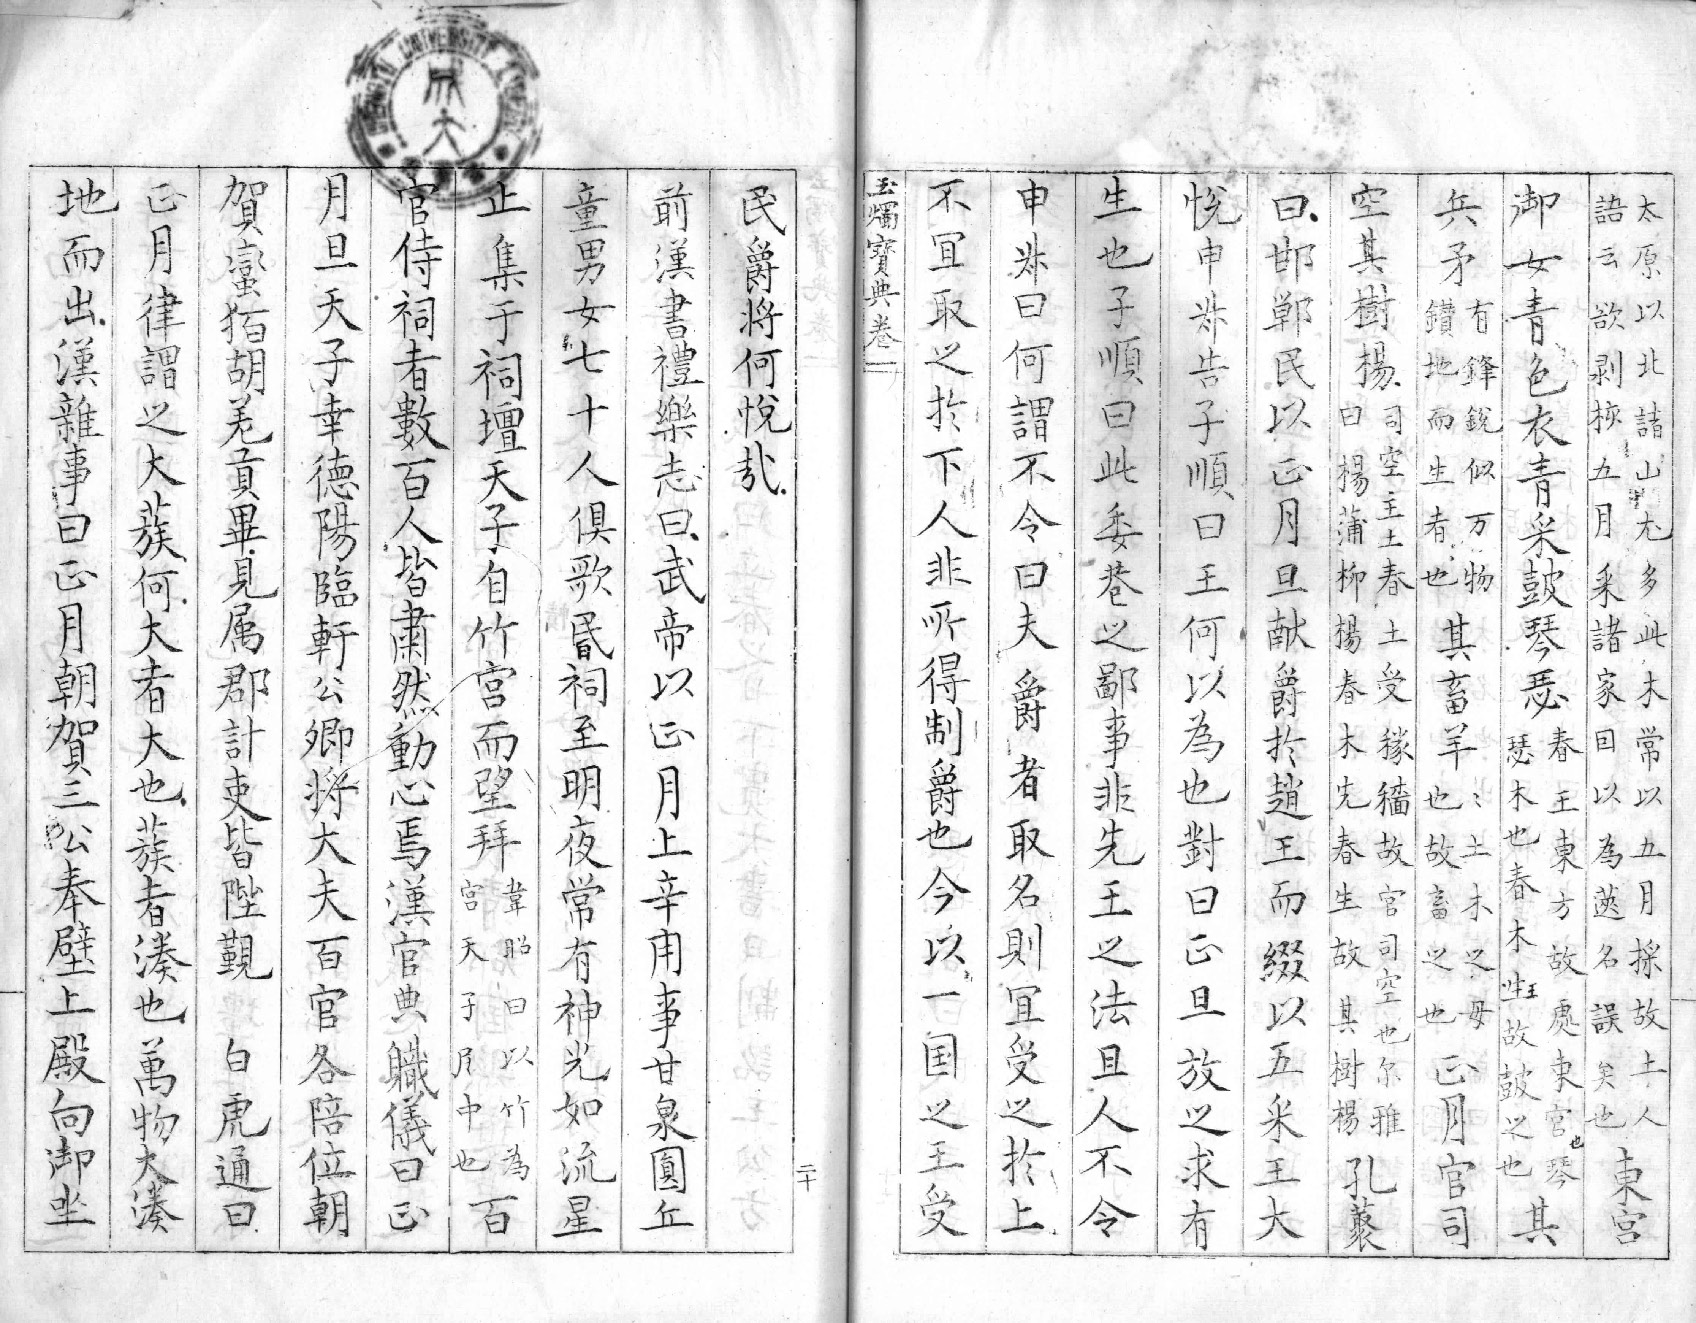 太原以北諸山尤多此木常以五月採故土人
語云欲剥椟五月采諸家目以為莢名誤矣也
東宮
御女青色衣青采鼓琴瑟
春王東方故處東宮也琴
瑟木也春木王故鼓之也
其
兵矛
有鋒銳似万物
鑚地而生者也
其畜羊
〻土木之母
也故畜之也
正月官司
空其樹楊
司空主土春土受稼穡故官司空也尔雅
曰楊蒲柳楊春木先春生故其樹楊
孔叢
曰邯鄲民以正月旦献爵扵趙王而綴以五采王大
悅申叔告子順曰王何以為也對曰正旦放之求有
生也子順曰此委巷之鄙事非先王之法且人不令
申叔曰何謂不令曰夫爵者取名則宜受之扵上
不宜取之扵下人非所得制爵也今以一国之王受
玉燭寶典卷一
民爵将何悅㢤
前漢書禮樂志曰武帝以正月上辛用事甘泉圓丘
童男女七十人俱歌昬祠至明夜常有神光如流星
止集于祠壇天子自竹宮而望拜
韋昭曰以竹為
宮天子居中也
百
官侍祠者數百人皆肅然動心焉漢官典職儀曰正
月旦天子幸德陽臨軒公卿将大夫百官各陪位朝
賀蠻貊胡羌貢畢見属郡計吏皆陛覲 白虎通曰
正月律謂之大蔟何大者大也蔟者湊也萬物大湊
地而出漢雜事曰正月朝賀三公奉璧上殿向御坐
二十
成大